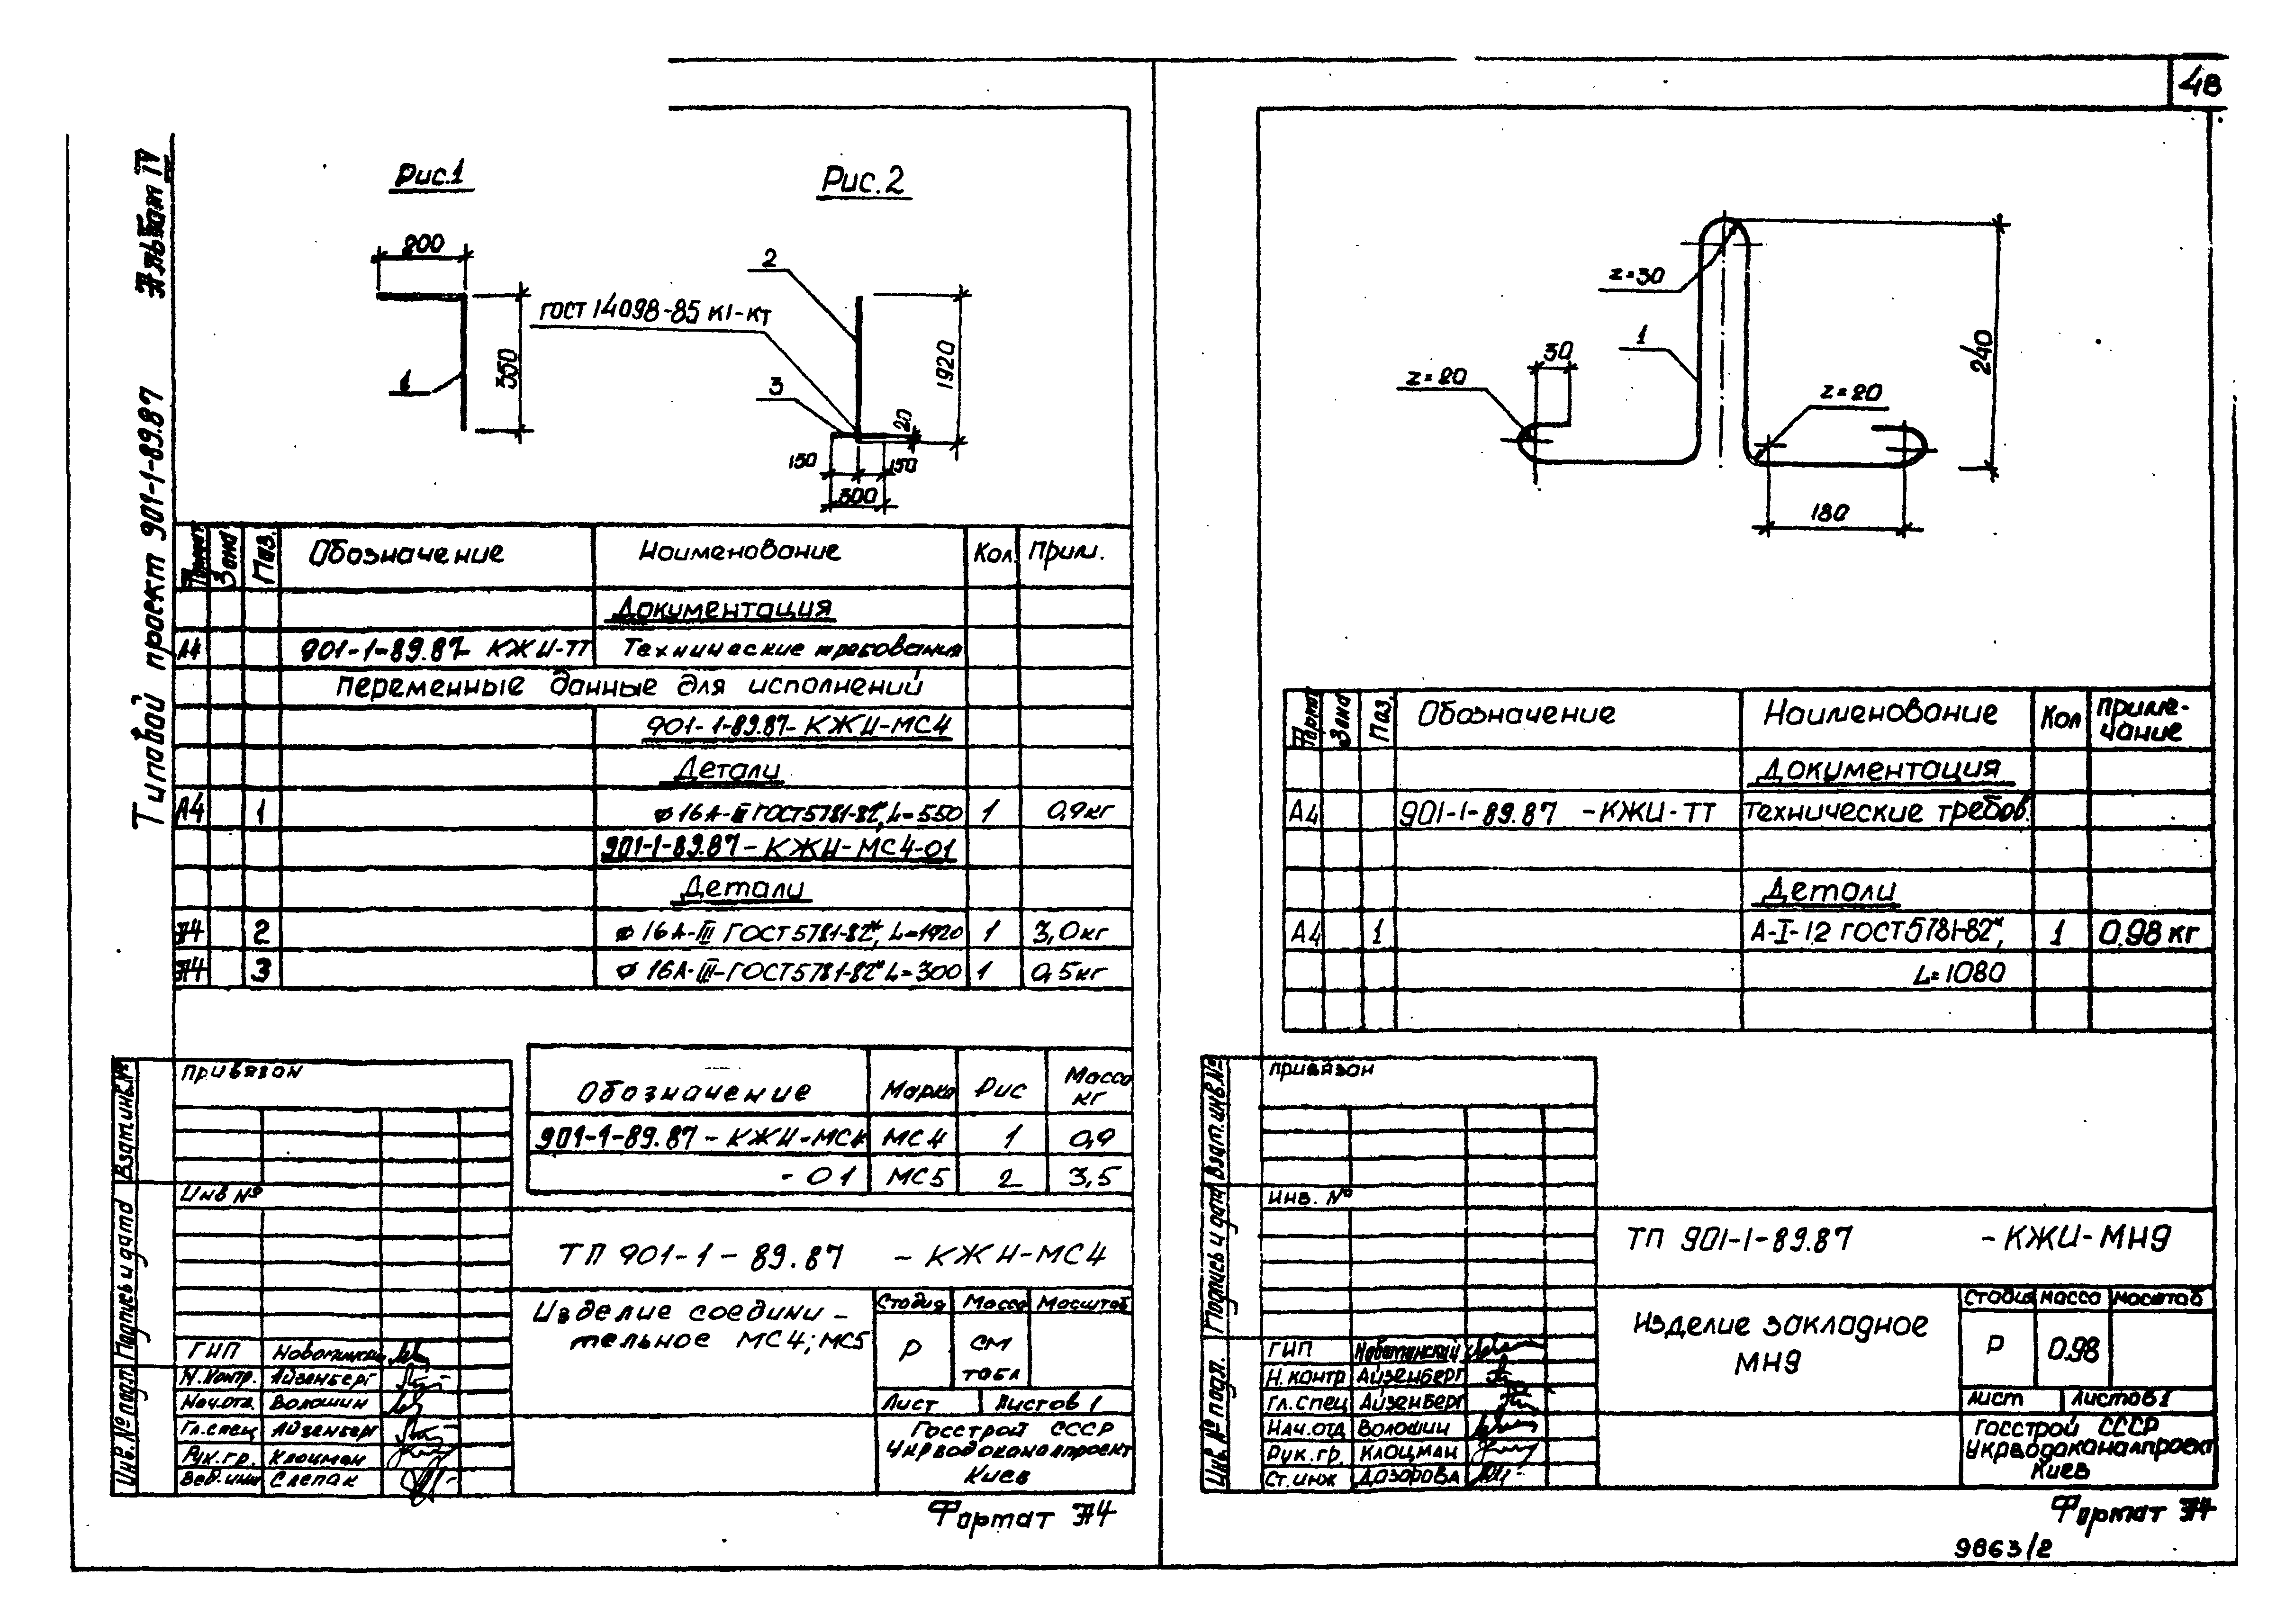 48
Альбом IV
Типовой проект 901-1-89.87
Рис.1
200
350
1
Рис.2
2
ГОСТ 14098-85 К1-КТ
3
1920
20
150
150
300
Формат
Зона
Поз.
Обозначение
Наименование
Кол.
Прим.
Документация
А4 901-1-89.87 КЖИ-ТТ Технические требования
Переменные данные для исполнений
901-1-89.87-КЖИ-МС4
Детали
А4 1 ⌀16А-III ГОСТ5781-82*, L=550 1 0,9кг
901-1-89.87-КЖИ-МС4-01
Детали
А4 2 ⌀16А-III ГОСТ5781-82*, L=1920 1 3,0кг
А4 3 ⌀16А-III-ГОСТ5781-82* L=300 1 0,5кг
Обозначение Марка Рис Масса кг
901-1-89.87-КЖИ-МС4 МС4 1 0,9
-01 МС5 2 3,5
Привязан
Инв №
Взам.инв.№
Подпись и дата
Инв.№ подл.
ТП 901-1-89.87 -КЖИ-МС4
Изделие соедини-
тельное МС4; МС5
Стадия Масса Масштаб
Р см
табл
Лист Листов 1
Госстрой СССР
Укрводоканалпроект
Киев
ГИП Новоминский
Н.контр. Айзенберг
Нач.отд. Волошин
Гл.спец Айзенберг
Рук.гр. Клоцман
Вед.инж Слепак
Формат А4
z=30
1
240
30
z=20
z=20
180
Формат
Зона
Поз
Обозначение
Наименование
Кол
Приме-
чание
Документация
А4 901-1-89.87 -КЖИ-ТТ Технические требов.
Детали
А4 1 А-I-12 ГОСТ5781-82*, 1 0.98 кг
L=1080
Привязан
Инв. №
Взам.инв.№
Подпись и дата
Инв.№ подл.
ТП 901-1-89.87 -КЖИ-МН9
Изделие закладное
МН9
Стадия Масса Масштаб
Р 0.98
Лист Листов 1
Госстрой СССР
Укрводоканалпроект
Киев
ГИП Новоминский
Н.контр Айзенберг
Гл.спец Айзенберг
Нач.отд Волошин
Рук.гр. Клоцман
Ст.инж Дозорова
Формат А4
9863/2